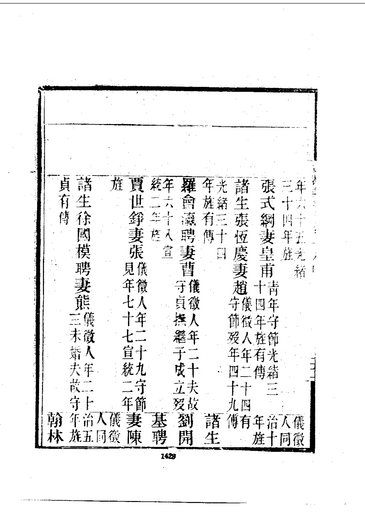 年六十五光緒
三十四年旌
儀徵
人同
張式綱妻皇甫
青年守節光緒三
十四年旌有傳
治十
年旌
諸生張恆慶妻趙
儀徵人年二十四有
守節歿年四十九傳
光緒三十四
年旌有傳
諸生
羅會瀛聘妻曹
儀徵人年二十夫故
守貞撫繼子成立歿
劉開
年六十八宣
統二年旌
基聘
賈世錚妻張
儀徵人年二十九守節
見年七十七宣統二年
妻陳
旌
儀徵
人同
諸生徐國模聘妻熊
儀徵人年二十
三未婚夫故守
治五
年旌
貞有傳
翰林
1429